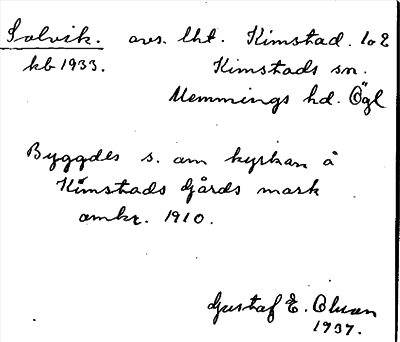 Solvik. avs. lht. Kimstad. 1o2
kb 1933. Kimstads sn.
Memmings hd. Ögl
Byggdes s. om kyrkan å
Kimstads Gårds mark
omkr. 1910.
Gustaf E. Olsson
1937.